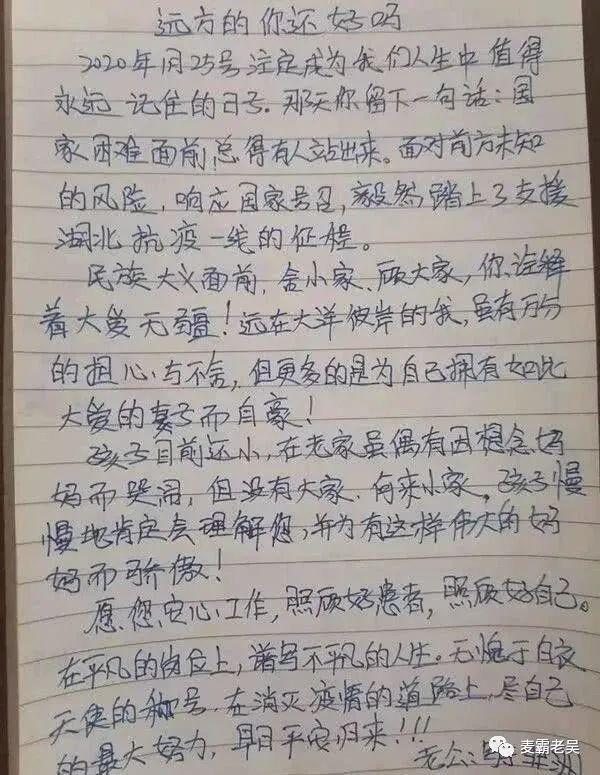 远方的你还好吗
2020年1月25号注定成为我们人生中值得
永远记住的日号.那天你留下一句话:国
家困难面前,总得有人站出来。面对前方未知
的风险,响应国家号召,毅然踏上了支援
湖北抗疫一线的征程。
民族大义面前,舍小家、顾大家,你诠释
着大爱无疆!远在大洋彼岸的我,虽有万分
的担心与不舍,但更多的是为自己拥有如此
大爱的妻子而自豪!
孩子目前还小,在老家虽偶有因想念妈
妈而哭闹,但没有大家.何来小家。孩子慢
慢地肯定会理解您,并为有这样伟大的妈
妈而骄傲!
愿您安心工作,照顾好患者,照顾好自己。
在平凡的岗位上,谱写不平凡的人生。无愧于白衣
天使的称号.在消灭疫情的道路上,尽自己
的最大努力,早日平安归来!!!
老公:
麦霸老吴